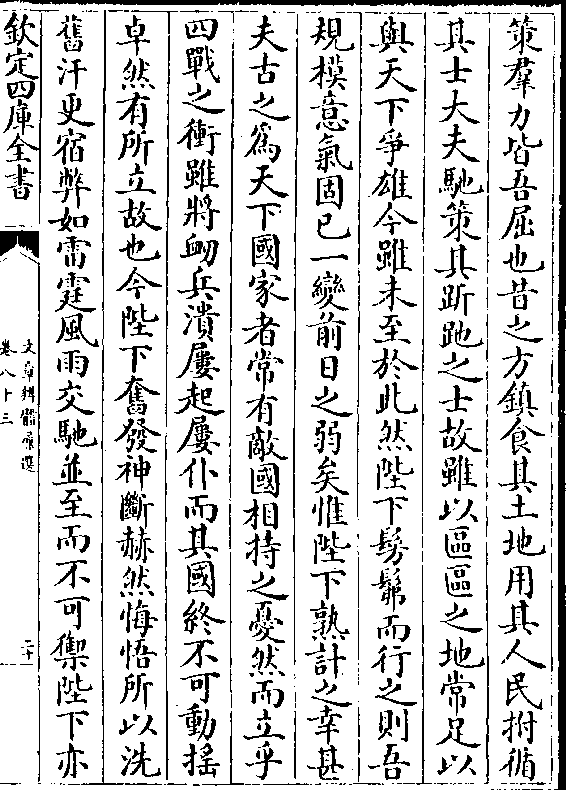 策羣力皆吾屈也昔之方鎮食其土地用其人民拊循
其士大夫馳策其跅跑之士故雖以區區之地常足以
與天下爭雄今雖未至於此然陛下髣髴而行之則吾
規模意氣固已一變前日之弱矣惟陛下熟計之幸甚
夫古之爲天下國家者常有敵國相持之憂然而立乎
四戰之衝雖將衂兵潰屢起屢仆而其國終不可動揺
卓然有所立故也今陛下奮發神斷赫然悔悟所以洗
舊汗更宿弊如雷霆風雨交馳並至而不可禦陛下亦
欽定四庫全書
文章辨體彚選
卷八十三
二十